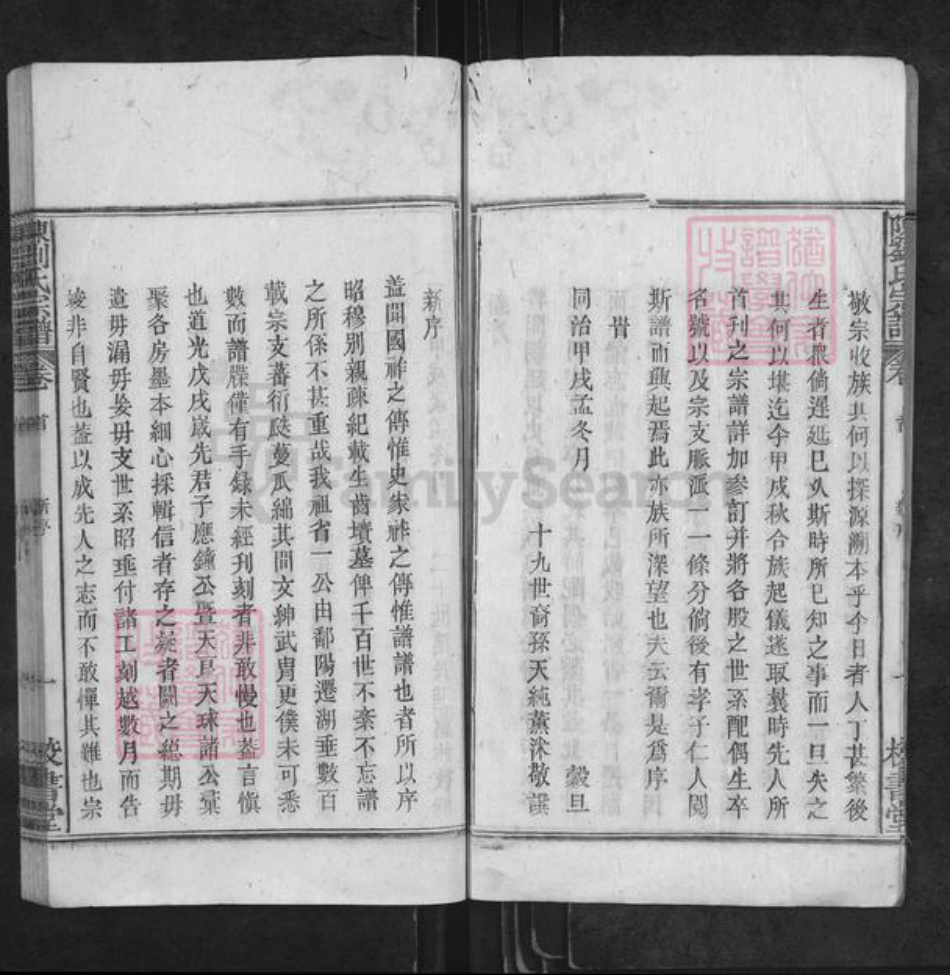 敬宗收族其何以探源溯本乎今日者人丁甚繁後
生者眾倘遲延已久斯時所已知之事而一旦失之
其何以堪迄今甲戌秋合族起儀遂取曩時先人所
首刊之宗譜詳加參訂并將各股之世系配偶生卒
名號以及宗支脈派一一條分倘後有孝子仁人閱
斯譜而興起焉此亦族所深望也夫云爾是為序
旹
同治甲戌孟冬月 穀旦
十九世裔孫天純薰沐敬譔
新序
蓋聞國祚之傳惟史家祚之傳惟譜譜也者所以序
昭穆別親疎紀載生齒墳墓俾千百世不紊不忘譜
之所係不甚重哉我祖省一公由鄱陽遷湖垂數百
載宗支蕃衍瓞蔓瓜綿其間文紳武胄更僕未可悉
數而譜牒僅有手錄未經刊刻者非敢慢也蓋言慎
也道光戊戌歲先君子應鐘公暨天貝天球諸公彙
聚各房墨本細心採輯信者存之疑者闕之總期毋
遺毋漏毋妄毋支世系昭垂付諸工刻越數月而告
竣非自賢也蓋以成先人之志而不敢憚其難也宗
劉氏宗譜 卷首 新序 一 校書堂